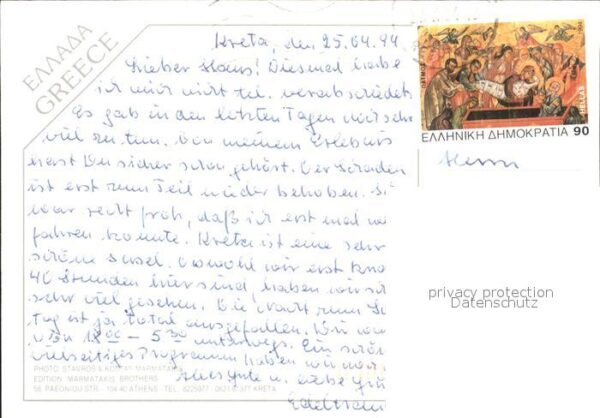 ΕΛΛΑΔΑ
GREECE
Kreta, den 25.04.94
Lieber Hans! Diesmal habe
ich mich nicht tel. verabschiedet.
Es gab in den letzten Tagen
viel zu tun. Von meinem
hast Du sicher schon gehört. Der Schaden
ist erst zum Teil wieder behoben.
war recht froh, daß ich erst mal
fahren konnte. Kreta ist eine sehr
schöne Insel. Obwohl wir erst
40 Stunden hier sind, haben wir
sehr viel gesehen. Die Nacht zum
tag ist ja total ausgefallen. Wir
von 18 00 - 5 30 unterwegs. Ein
vielseitiges Programm haben wir
Alles Gute u. Liebe
PHOTO: STAVROS &
EDITION: MARMATAKIS BROTHERS
56, PAEONIOU STR. - 104 40 ATHENS TEL. 8225977 KRETA
ΕΛΛΗΝΙΚΗ ΔΗΜΟΚΡΑΤΙΑ 90
HELLAS
Herrn
privacy protection
Datenschutz